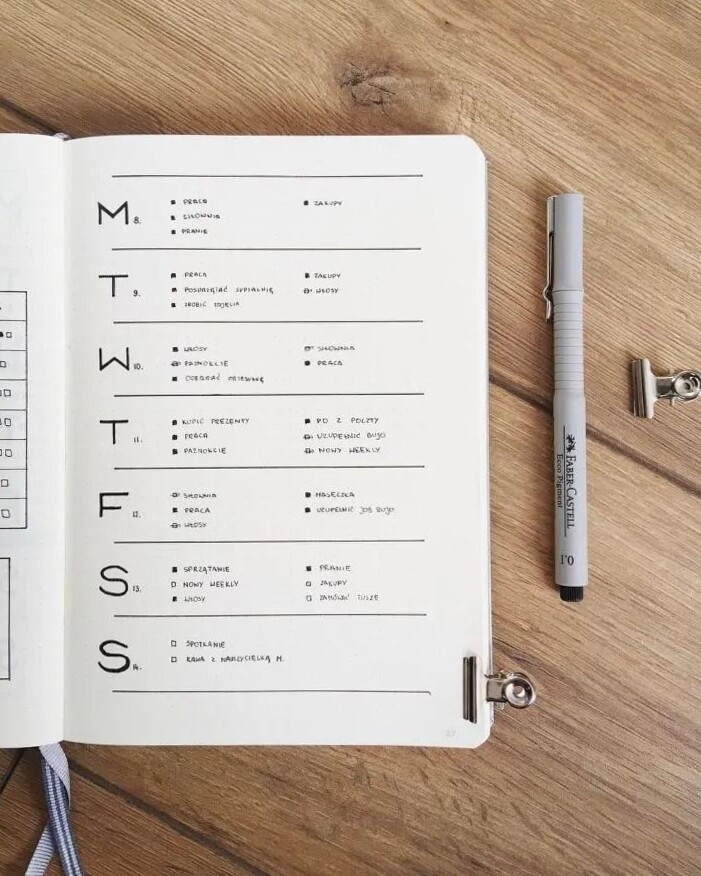 M 8.
PRACA
SIŁOWNIA
PRANIE
ZAKUPY
T 9.
PRACA
POSPRZĄTAĆ SYPIALNIĘ
ZROBIĆ ZDJĘCIA
ZAKUPY
WŁOSY
W 10.
WŁOSY
PAZNOKCIE
ODEBRAĆ PRZESYŁKĘ
SIŁOWNIA
PRACA
T 11.
KUPIĆ PREZENTY
PRACA
PAZNOKCIE
PO Z POCZTY
UZUPEŁNIĆ BUJO
NOWY WEEKLY
F 12.
SIŁOWNIA
PRACA
WŁOSY
MASECZKA
UZUPEŁNIĆ JOB BUJO
S 13.
SPRZĄTANIE
NOWY WEEKLY
WŁOSY
PRANIE
ZAKUPY
ZAMÓWIĆ TUSZE
S 14.
SPOTKANIE
KAWA Z NARZYCIELKĄ M.
FABER-CASTELL
Ecco Pigment
0.1